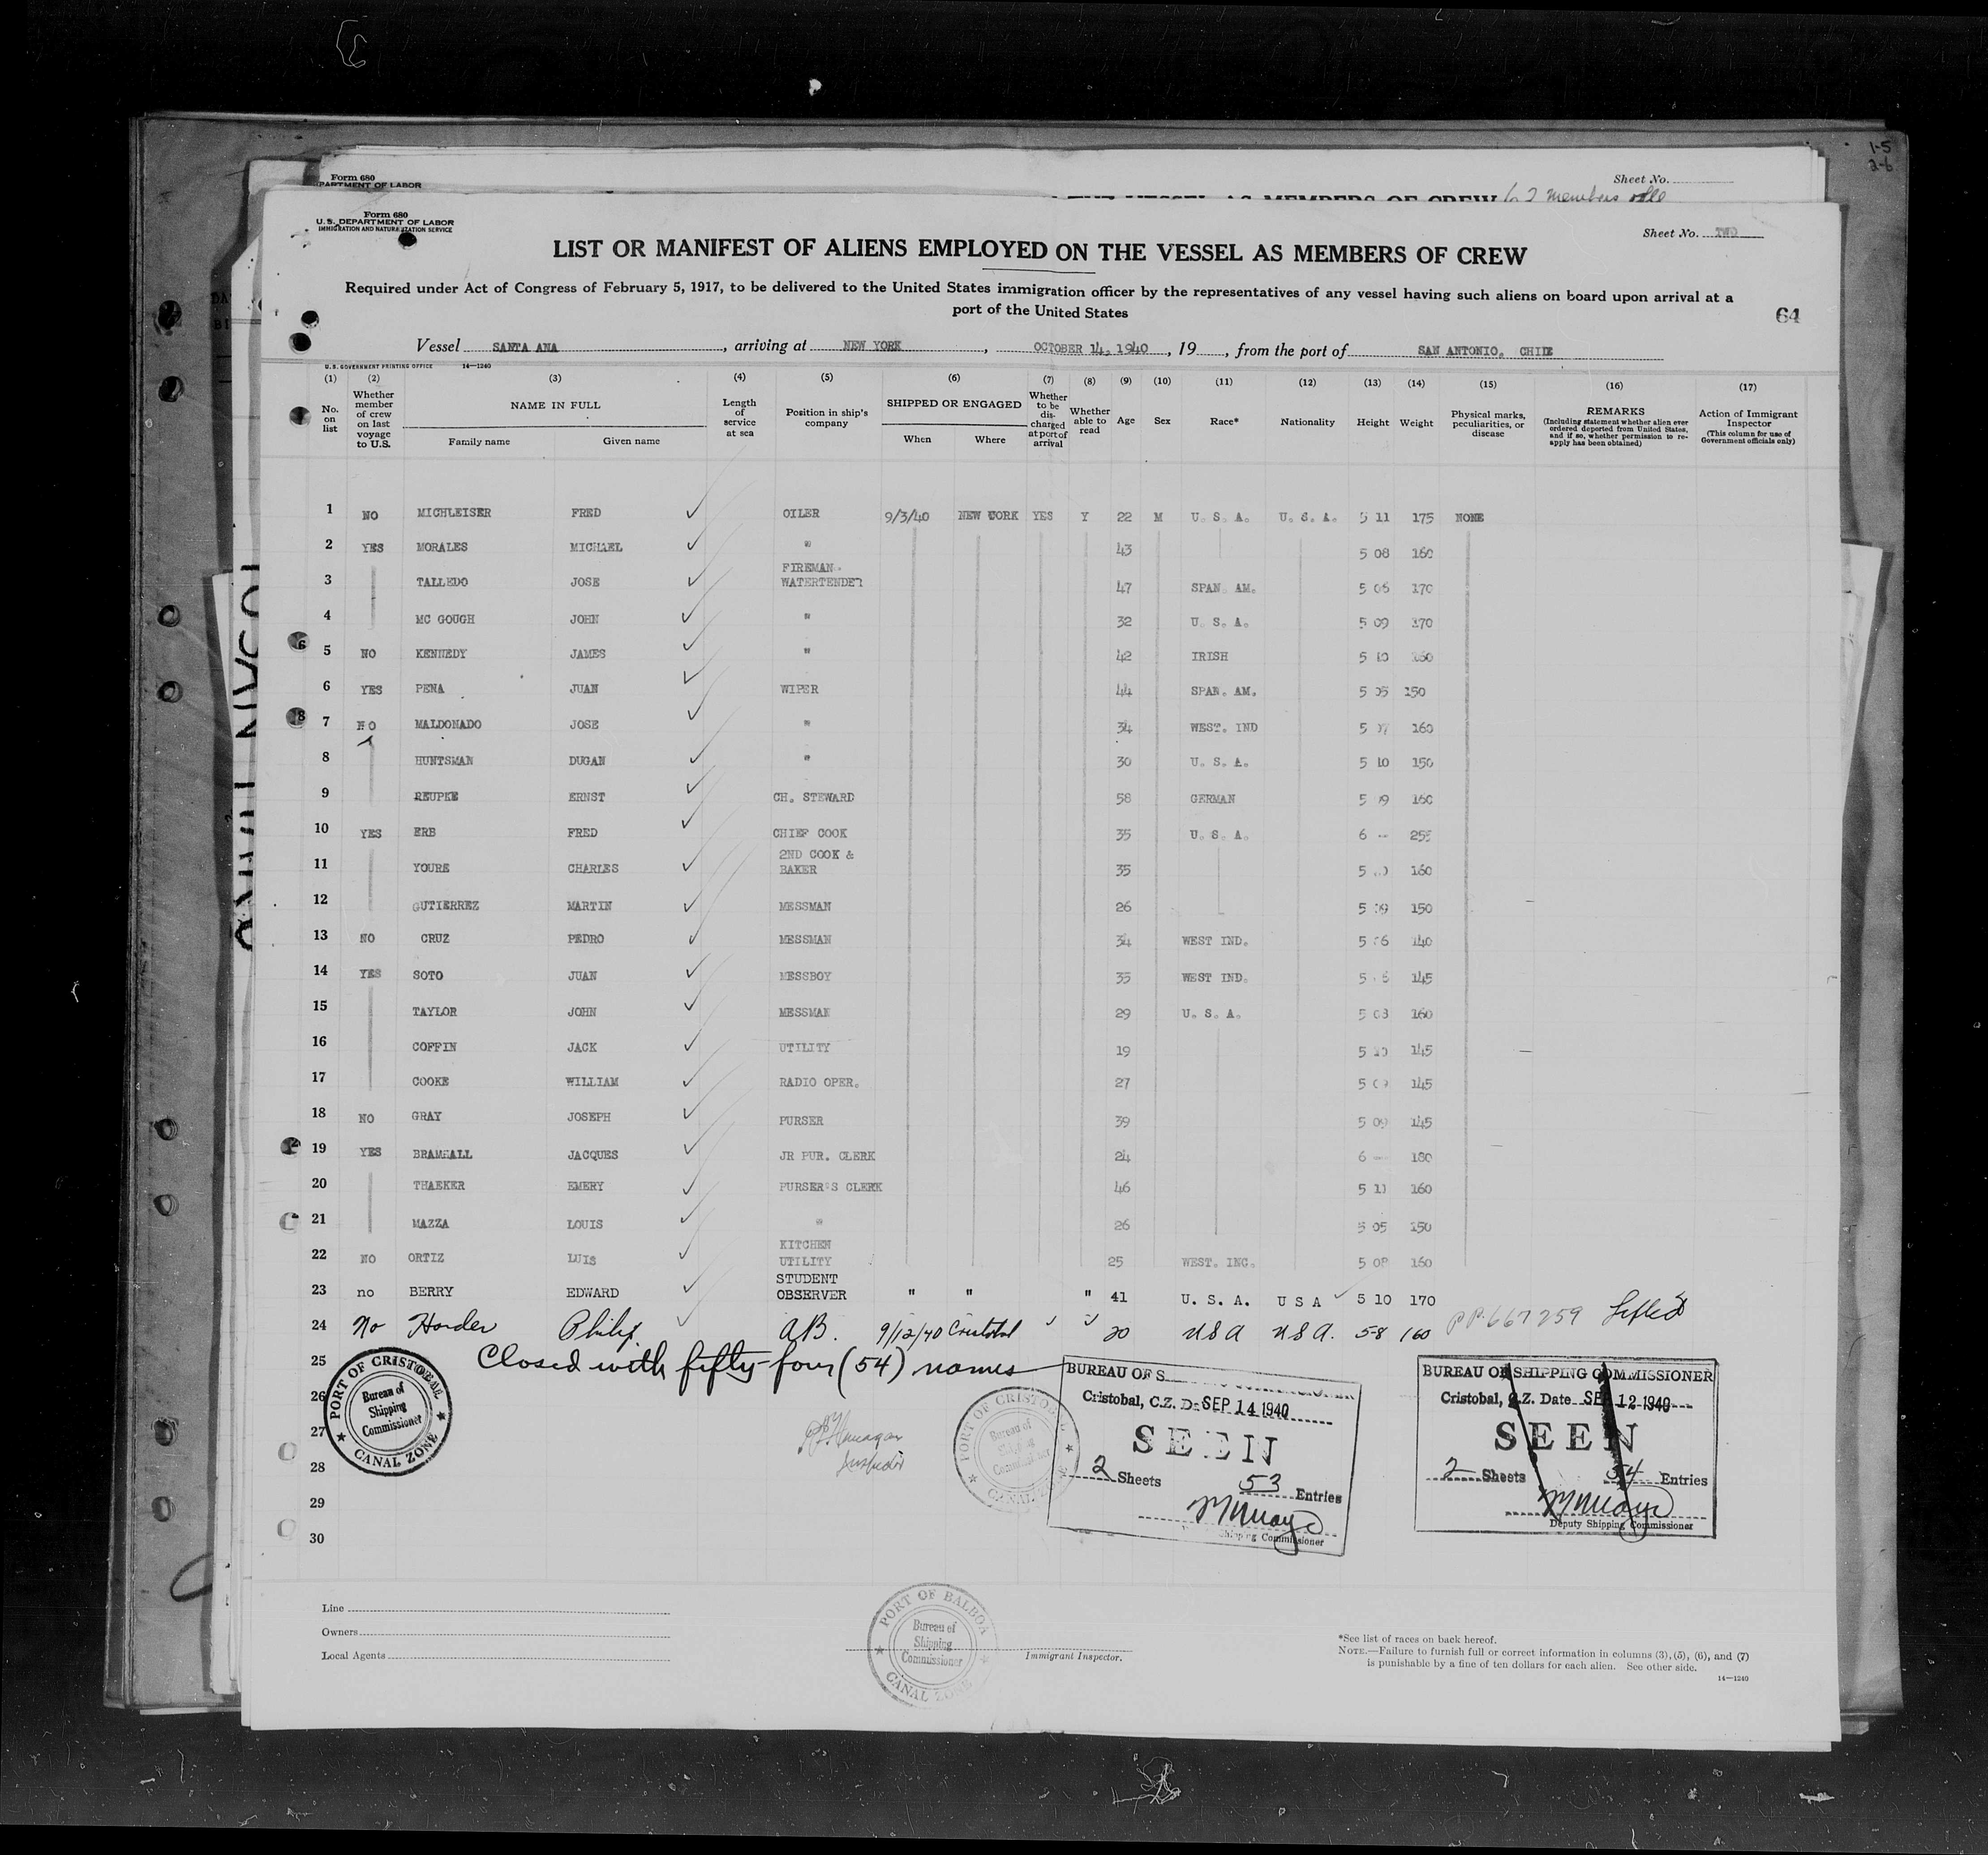 1-5
2-6
Form 680
PARTMENT OF LABOR
Sheet No.
62 members
Form 680
U. S. DEPARTMENT OF LABOR
IMMIGRATION AND NATURALIZATION SERVICE
Sheet No. TWO
LIST OR MANIFEST OF ALIENS EMPLOYED ON THE VESSEL AS MEMBERS OF CREW
Required under Act of Congress of February 5, 1917, to be delivered to the United States immigration officer by the representatives of any vessel having such aliens on board upon arrival at a
port of the United States
64
Vessel SANTA ANA, arriving at NEW YORK, OCTOBER 14, 1940, 19, from the port of SAN ANTONIO, CHILE
U. S. GOVERNMENT PRINTING OFFICE 14—1240
(1) (2) (3) (4) (5) (6) (7) (8) (9) (10) (11) (12) (13) (14) (15) (16) (17)
No. on list
Whether member of crew on last voyage to U.S.
NAME IN FULL
Family name Given name
Length of service at sea
Position in ship's company
SHIPPED OR ENGAGED
When Where
Whether to be discharged at port of arrival
Whether able to read
Age
Sex
Race*
Nationality
Height
Weight
Physical marks, peculiarities, or disease
REMARKS
(Including statement whether alien ever ordered deported from United States, and if so, whether permission to reapply has been obtained)
Action of Immigrant Inspector
(This column for use of Government officials only)
1 NO MICHLEISER FRED OILER 9/3/40 NEW YORK YES Y 22 M U. S. A. U. S. A. 5 11 175 NONE
2 YES MORALES MICHAEL " 43 5 08 160
3 TALLEDO JOSE FIREMAN-WATERTENDER 47 SPAN. AM. 5 06 170
4 MC GOUGH JOHN " 32 U. S. A. 5 09 170
5 NO KENNEDY JAMES " 42 IRISH 5 10 160
6 YES PENA JUAN WIPER 44 SPAN. AM. 5 05 150
7 NO MALDONADO JOSE " 34 WEST. IND 5 07 160
8 HUNTSMAN DUGAN " 30 U. S. A. 5 10 150
9 REUPKE ERNST CH. STEWARD 58 GERMAN 5 09 160
10 YES ERB FRED CHIEF COOK 35 U. S. A. 6 -- 255
11 YOURE CHARLES 2ND COOK & BAKER 35 5 160
12 GUTIERREZ MARTIN MESSMAN 26 5 09 150
13 NO CRUZ PEDRO MESSMAN 34 WEST IND. 5 06 140
14 YES SOTO JUAN MESSBOY 35 WEST IND. 5 145
15 TAYLOR JOHN MESSMAN 29 U. S. A. 5 08 160
16 COFFIN JACK UTILITY 19 5 10 145
17 COOKE WILLIAM RADIO OPER. 27 5 145
18 NO GRAY JOSEPH PURSER 39 5 09 145
19 YES BRAMHALL JACQUES JR PUR. CLERK 24 6 -- 180
20 THAEKER EMERY PURSER'S CLERK 46 5 11 160
21 MAZZA LOUIS " 26 5 05 150
22 NO ORTIZ LUIS KITCHEN UTILITY 25 WEST. INC. 5 08 160
23 no BERRY EDWARD STUDENT OBSERVER " " " 41 U. S. A. U S A 5 10 170
24 No Harder Philip AB. 9/12/40 Cristobal " " 20 USA USA. 5-8 160 PP. 667259 Lifted
25 Closed with fifty-four (54) names
26
27
28
29
30
PORT OF CRISTOBAL
Bureau of
Shipping
Commissioner
CANAL ZONE
Inspector
PORT OF CRISTOBAL
Bureau of
Shipping
Commissioner
CANAL ZONE
BUREAU OF S COMMISSIONER
Cristobal, C.Z. D SEP 14 1940
SEEN
2 Sheets 53 Entries
Shipping Commissioner
BUREAU OF SHIPPING COMMISSIONER
Cristobal, C.Z. Date SEP 12 1940
SEEN
2 Sheets 54 Entries
Deputy Shipping Commissioner
Line
Owners
Local Agents
PORT OF BALBOA
Bureau of
Shipping
Commissioner
CANAL ZONE
Immigrant Inspector.
*See list of races on back hereof.
NOTE.—Failure to furnish full or correct information in columns (3), (5), (6), and (7)
is punishable by a fine of ten dollars for each alien. See other side.
14—1240